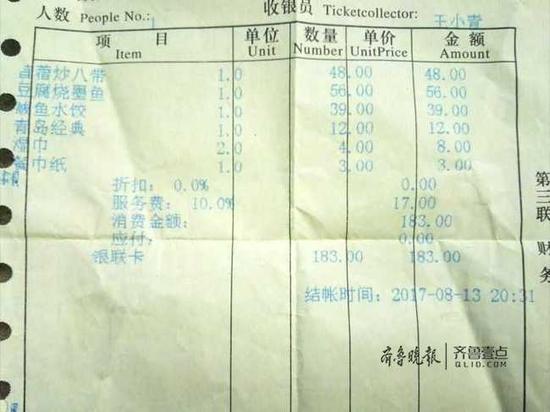 人数 People No.: 1 收银员 Ticketcollector: 王小青
项目 单位 数量 单价 金额
Item Unit Number UnitPrice Amount
蒜炒八带 1.0 48.00 48.00
豆腐烧墨鱼 1.0 56.00 56.00
鲅鱼水饺 1.0 39.00 39.00
青岛经典 1.0 12.00 12.00
湿巾 2.0 4.00 8.00
餐巾纸 1.0 3.00 3.00
折扣: 0.0% 0.00
服务费: 10.0% 17.00
消费金额: 183.00
应付: 0.00
银联卡 183.00 183.00
结帐时间: 2017-08-13 20:31
第三联
财务
齐鲁晚报 齐鲁壹点
QLID.COM